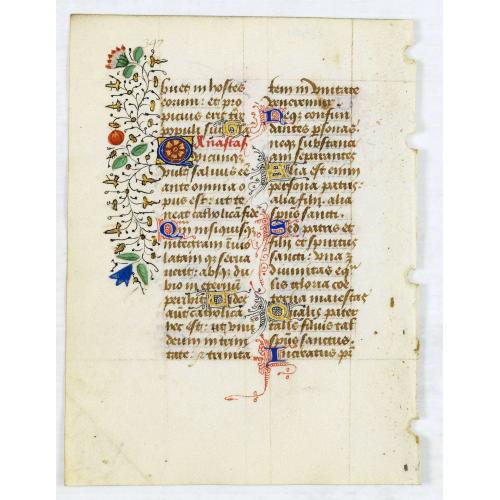 buet in hostes
eorum: et pro
picius erit t̄re
populi sui
Añastas
Quicumqꝫ
vult salvus eē
ante omnia o
pus est: ut te
neat catholicā fidē
Quā nisi quisqꝫ
integram inuio
latam qꝫ serua
uerit: absqꝫ du
bio in eternū
peribit Fides
autē catholica
hec est: ut vnū
deum in trini
tate ⁊ trinita
tem in vnitate
veneremur
Neqꝫ confun
dantes personas
neqꝫ substanti
am separantes
Alia est enim
persona patris
alia filii alia
spūs sancti
Sed patris et
filii et spiritus
sancti: vna ē
diuinitas eq̄
lis gloria coe
terna maiestas
Qualis pater
talis filius tal
spūs sanctus
Increatus pr̄